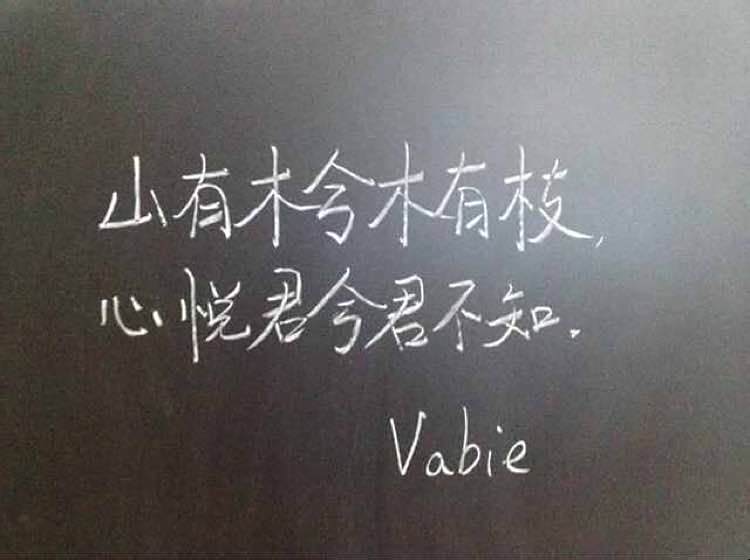 山有木兮木有枝,
心悦君兮君不知.
Vabie